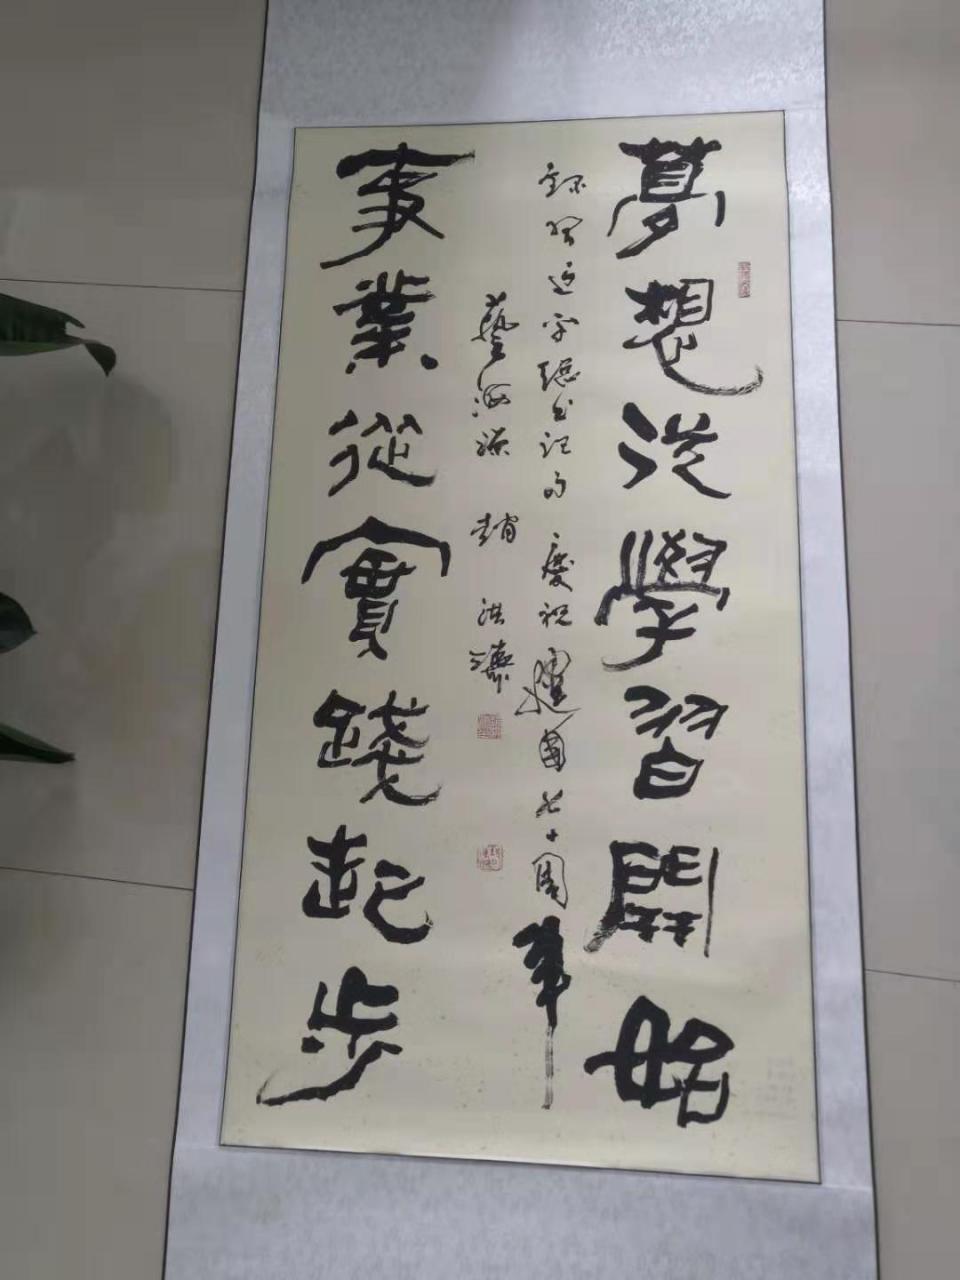 夢想從學習開始
錄習近平總書記句 慶祝建國七十周年
藝海源 趙洪
事業從實踐起步